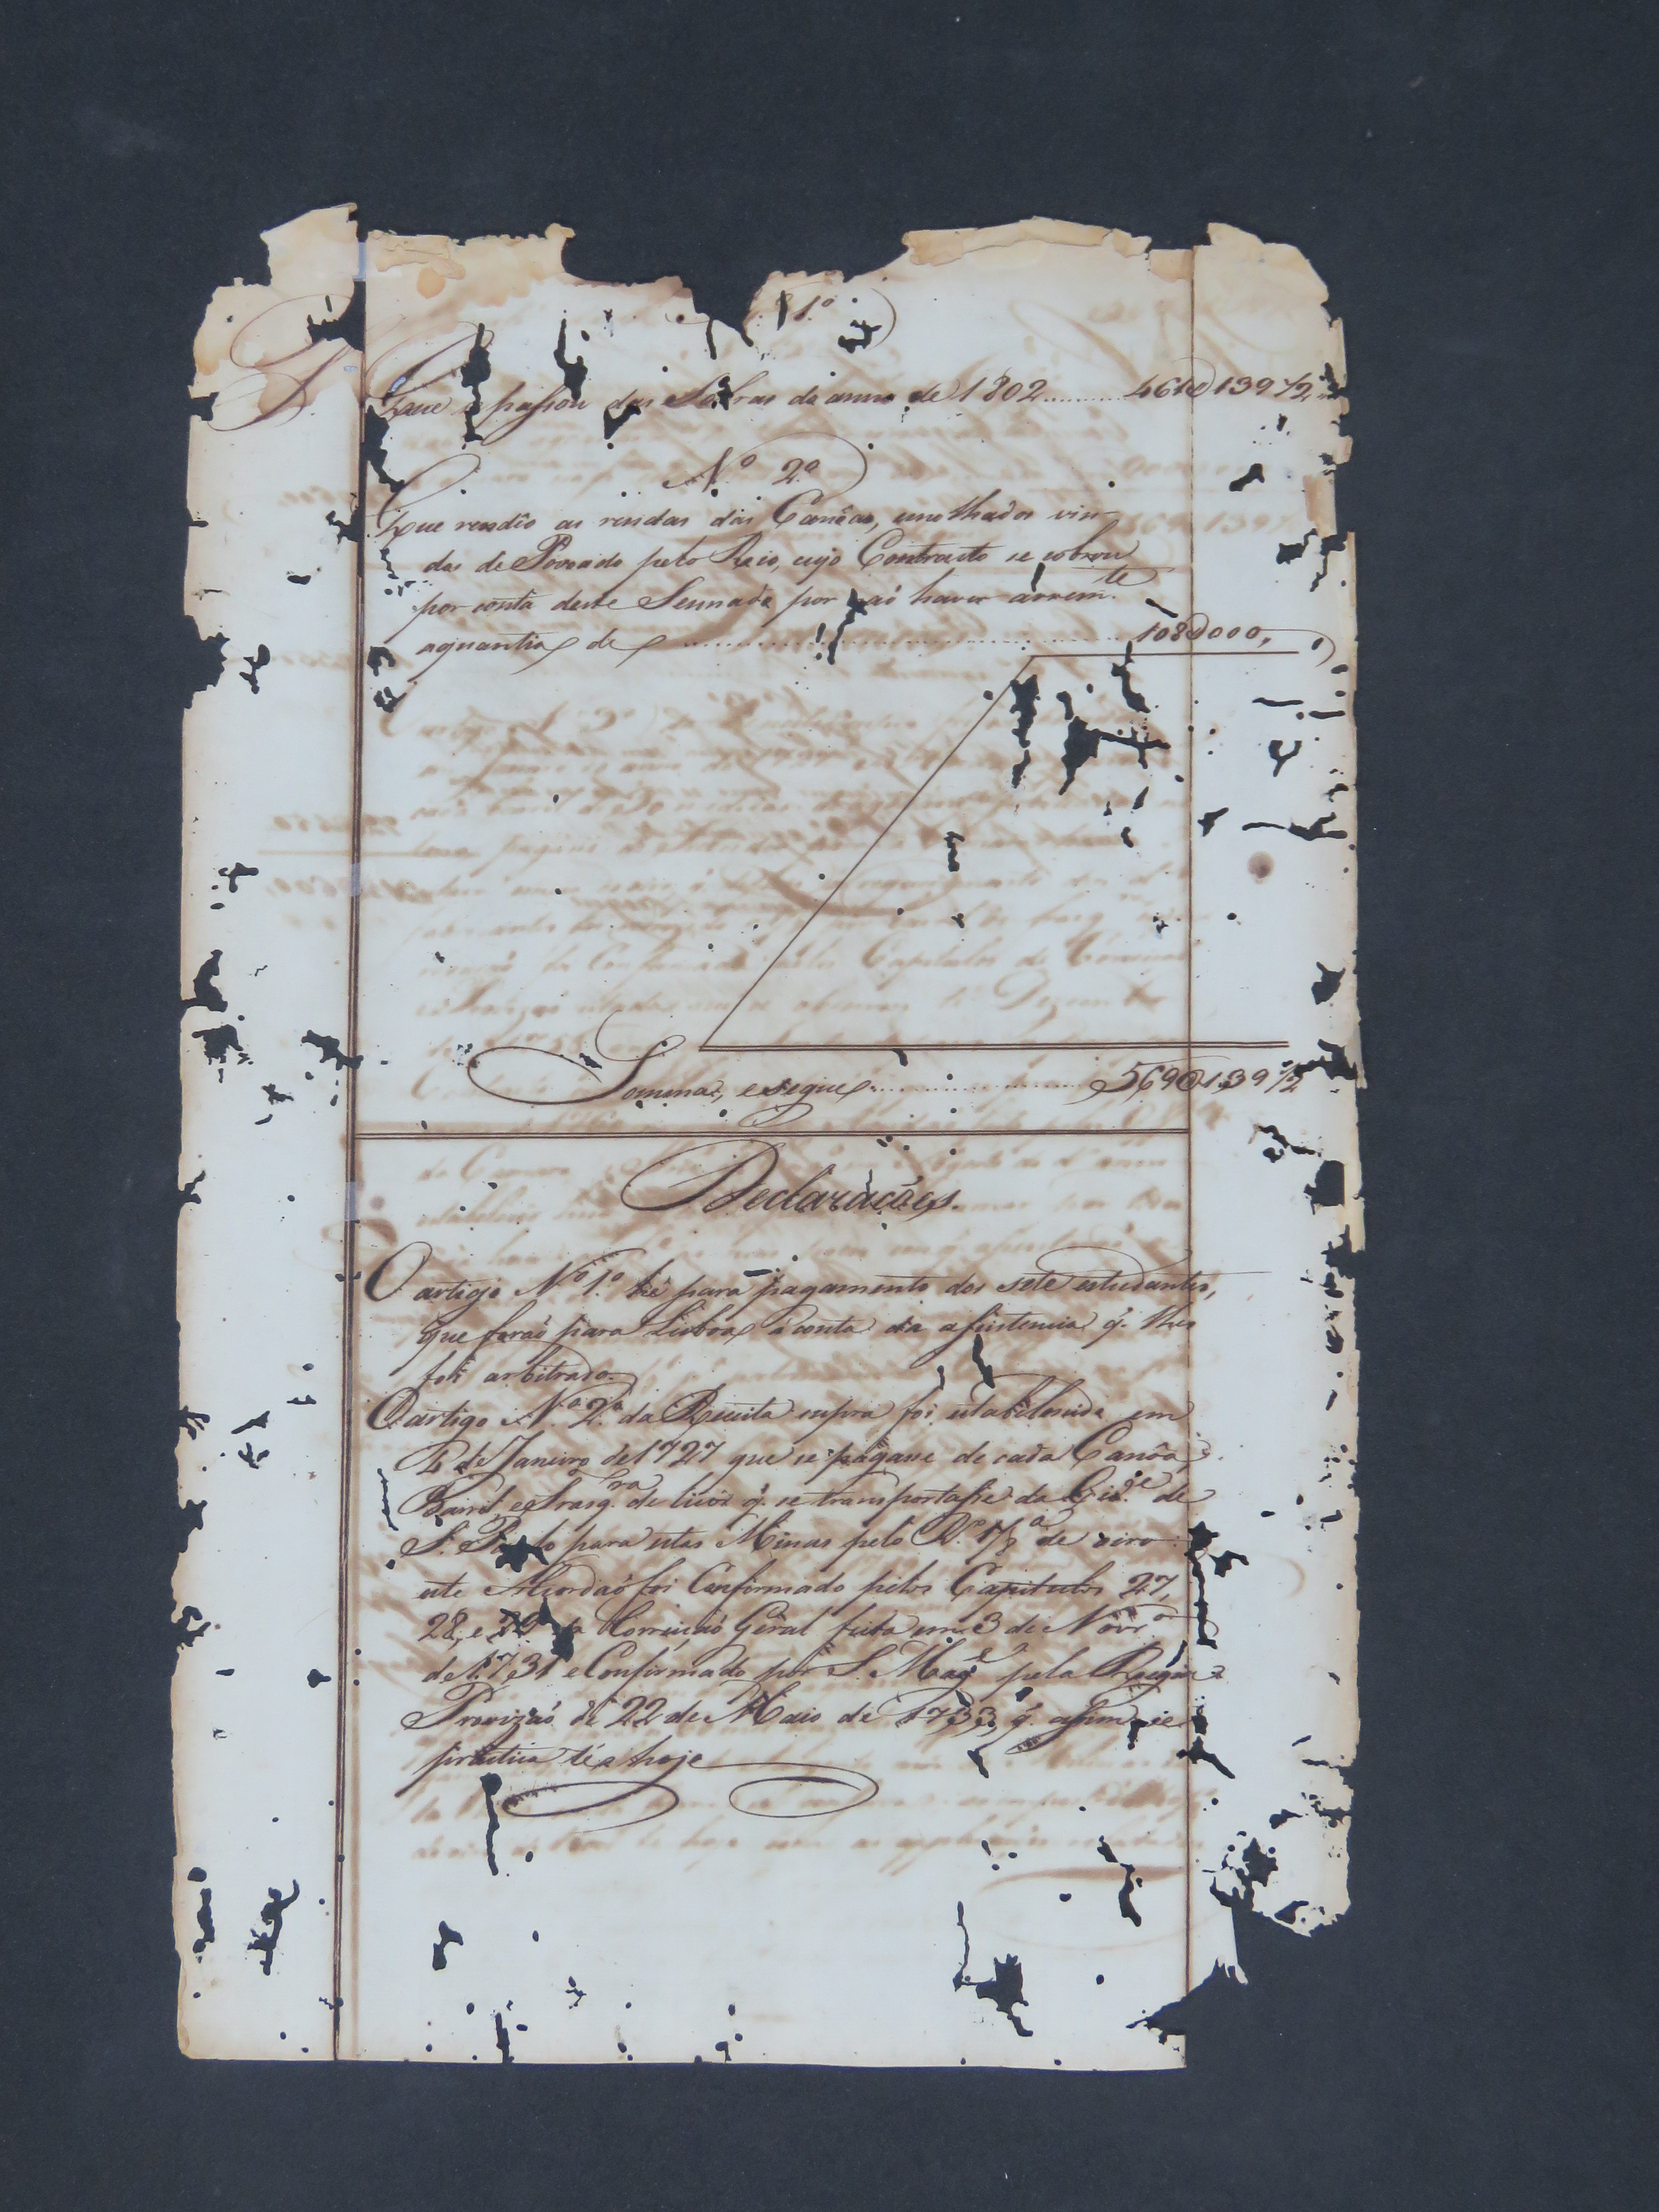 1º
Que passou das Sobras do anno de 1802 ......... 461@139 1/2
Nº 2º
Que rendêo as rendas das Canôas, e molhados vin-
dos de Povoado pelo Rio, cujo Contracto se cobrou
por conta deste Sennado por naõ haver arrem.te
aquantia de ......... 108@000,
Somma, e segue ......... 569@139 1/2
Declaracões.
O artigo Nº 1.º hé para pagamento dos sete estudantes,
que foraõ para Lisboa á conta da assistencia q. lhes
foi arbitrado.
O artigo Nº 2.º da Receita supra foi estabelecida em
de Janeiro de 1727 que se pagasse de cada Canôa,
Barril, e frasq.ra de licôr q. se transportasse da Cid.e de
S. Paulo para estas Minas pelo R.º 1/8.a de oiro
este Acordaõ foi Confirmado pelos Capitulos 27,
28, e 29 da Correiçaõ Geral feita em 3 de Novr.o
de 1731 e Confirmado por S. Mag.e pela Regia
Provizaõ de 22 de Maio de 1733, q. assim se
practica té a hoje